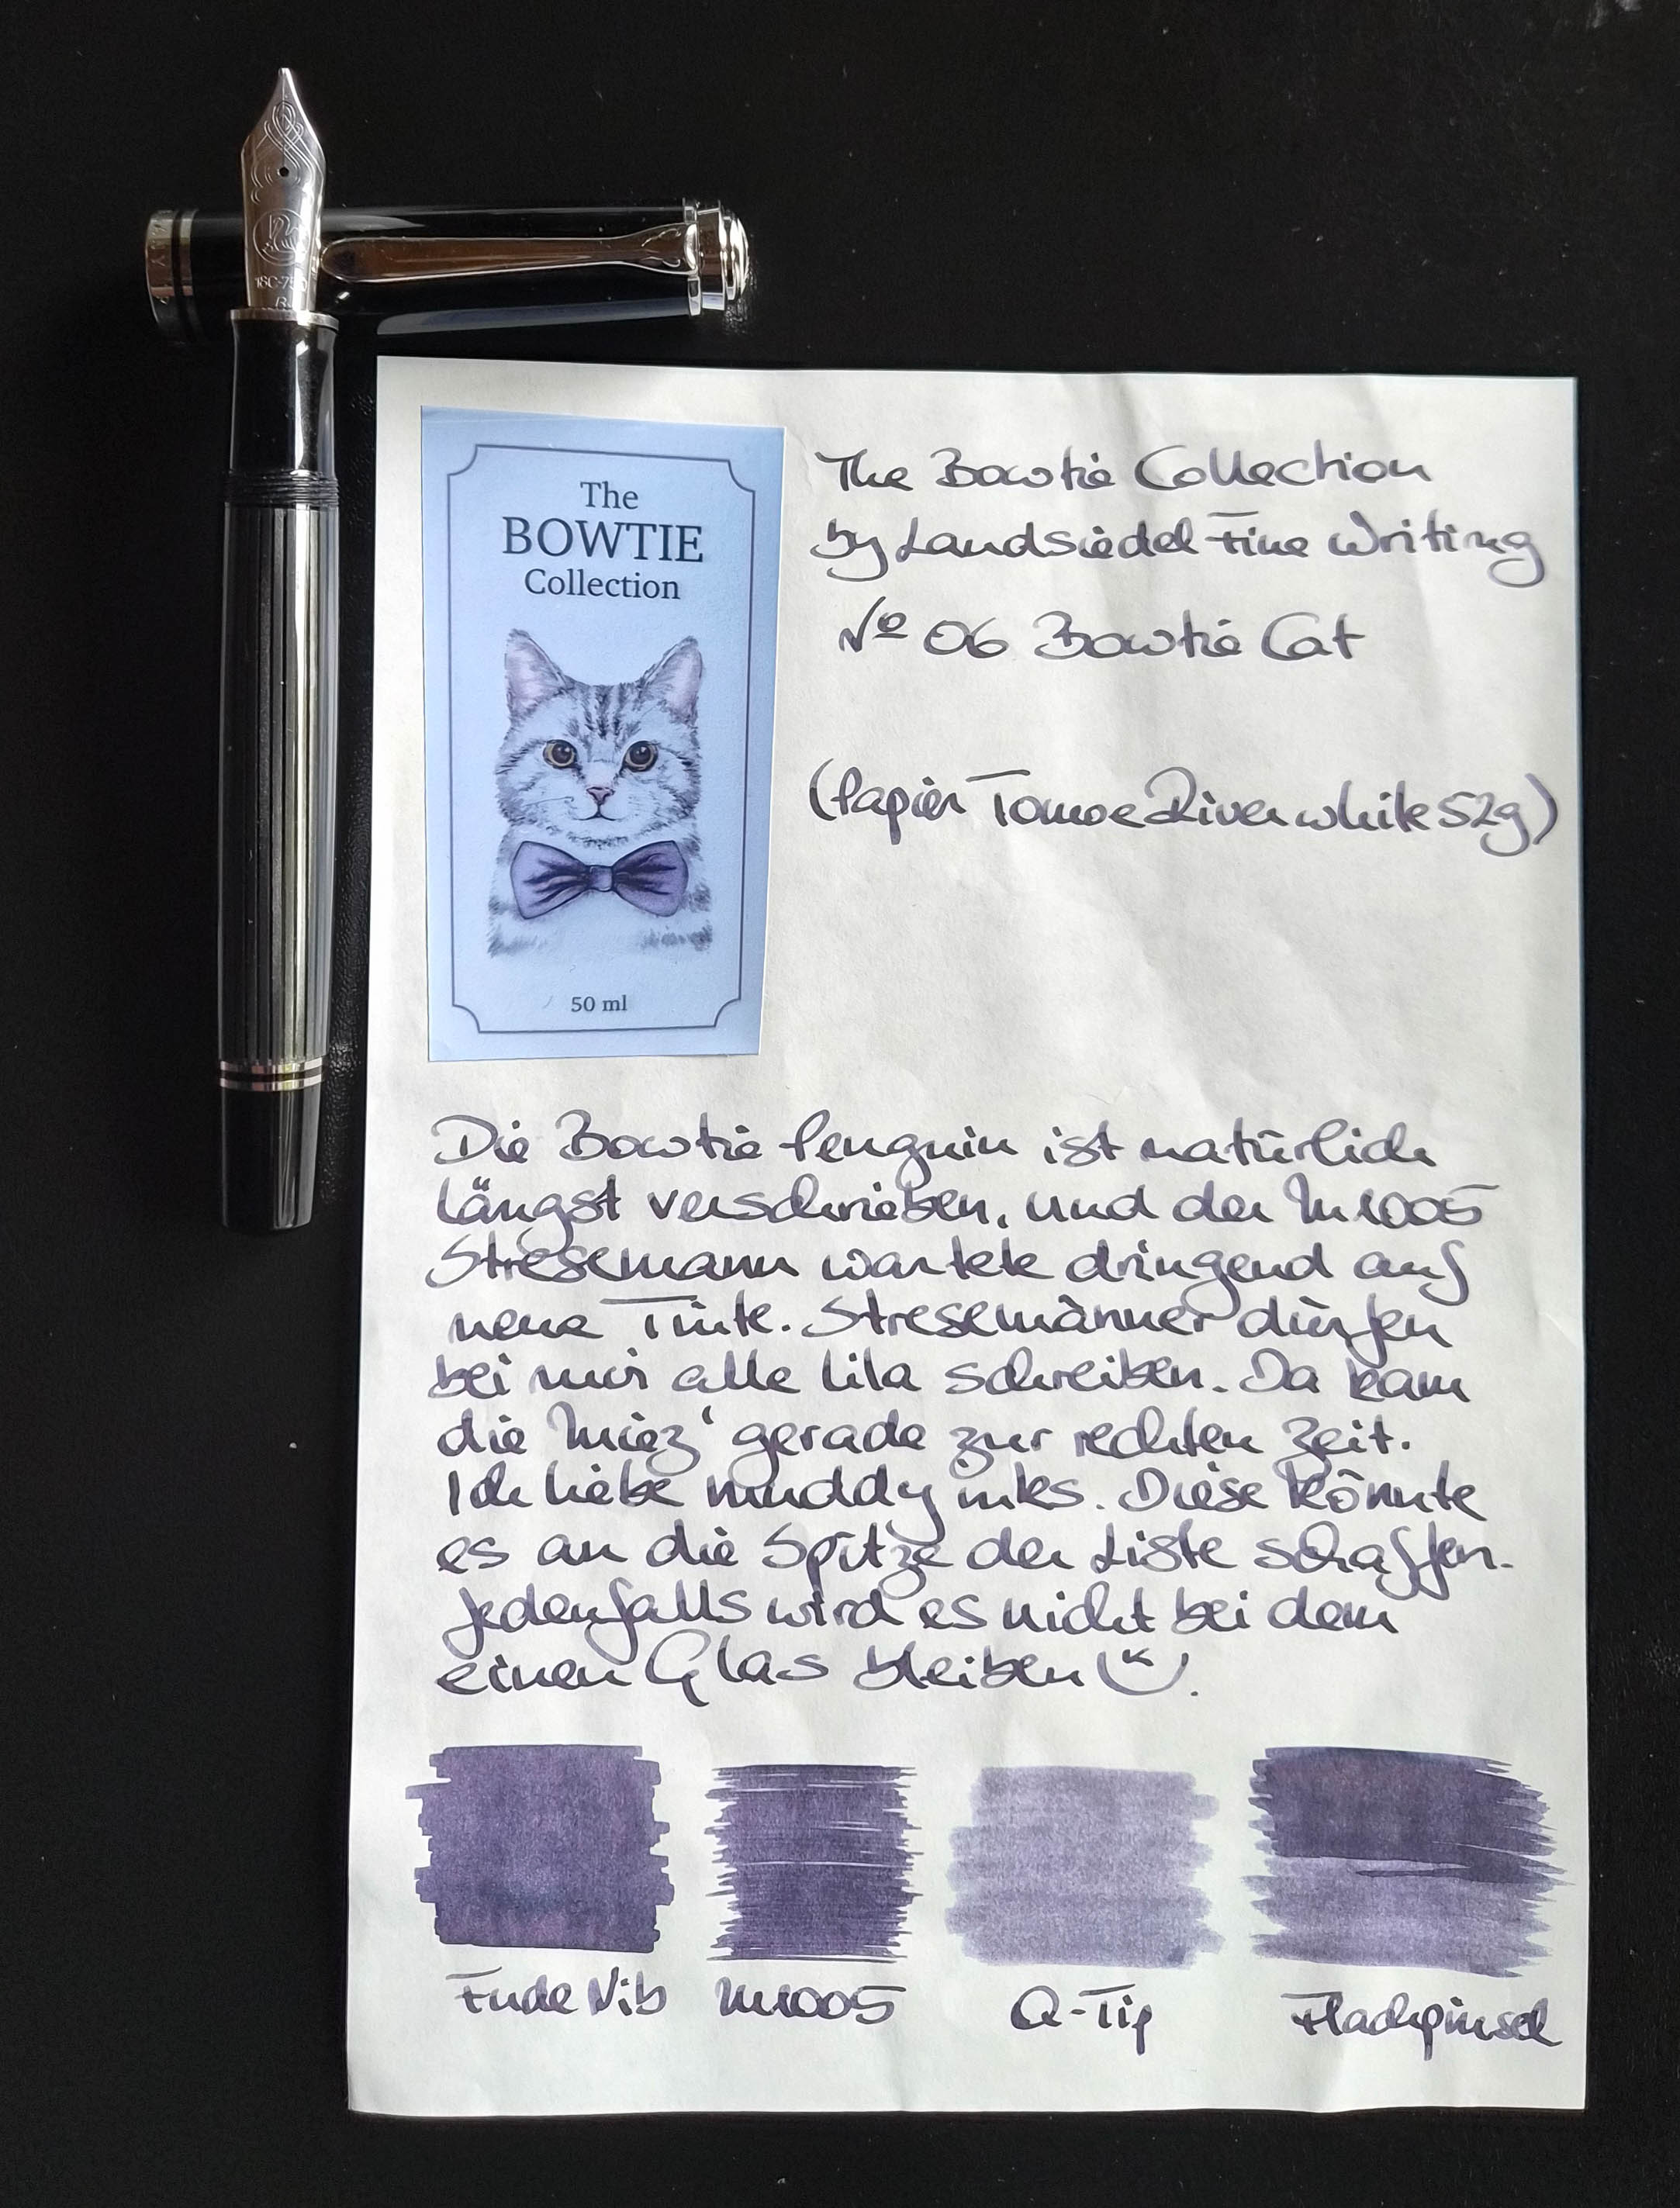 The
BOWTIE
Collection
50 ml
The Bowtie Collection
by Landsiedel Fine Writing
Nº 06 Bowtie Cat
(Papier Tomoe River white 52g)
Die Bowtie Penguin ist natürlich
längst verschrieben, und der M1005
Stresemann wartete dringend auf
neue Tinte. Stresemänner dürfen
bei mir alle lila schreiben. Da kam
die Miez' gerade zur rechten Zeit.
Ich liebe muddy inks. Diese könnte
es an die Spitze der Liste schaffen.
Jedenfalls wird es nicht bei dem
einen Glas bleiben.
Fude Nib
M1005
Q-Tip
Flachpinsel